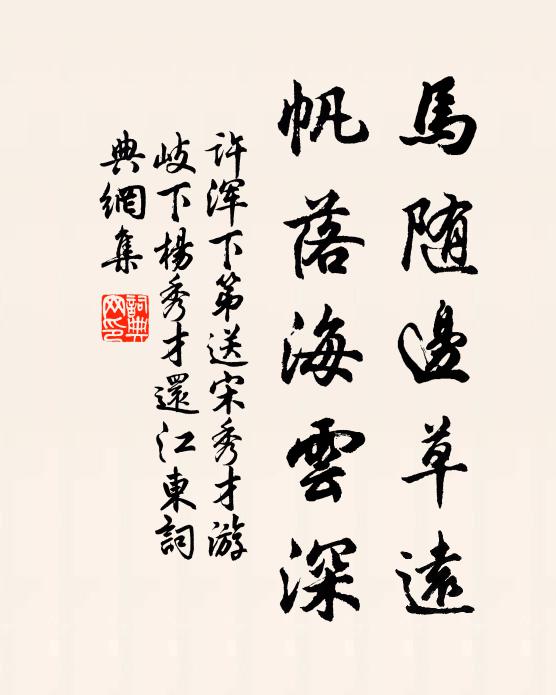 馬随邊草遠
帆落海雲深
許渾下第送宋秀才游
岐下楊秀才還江東詞
典網集
詞典
网印